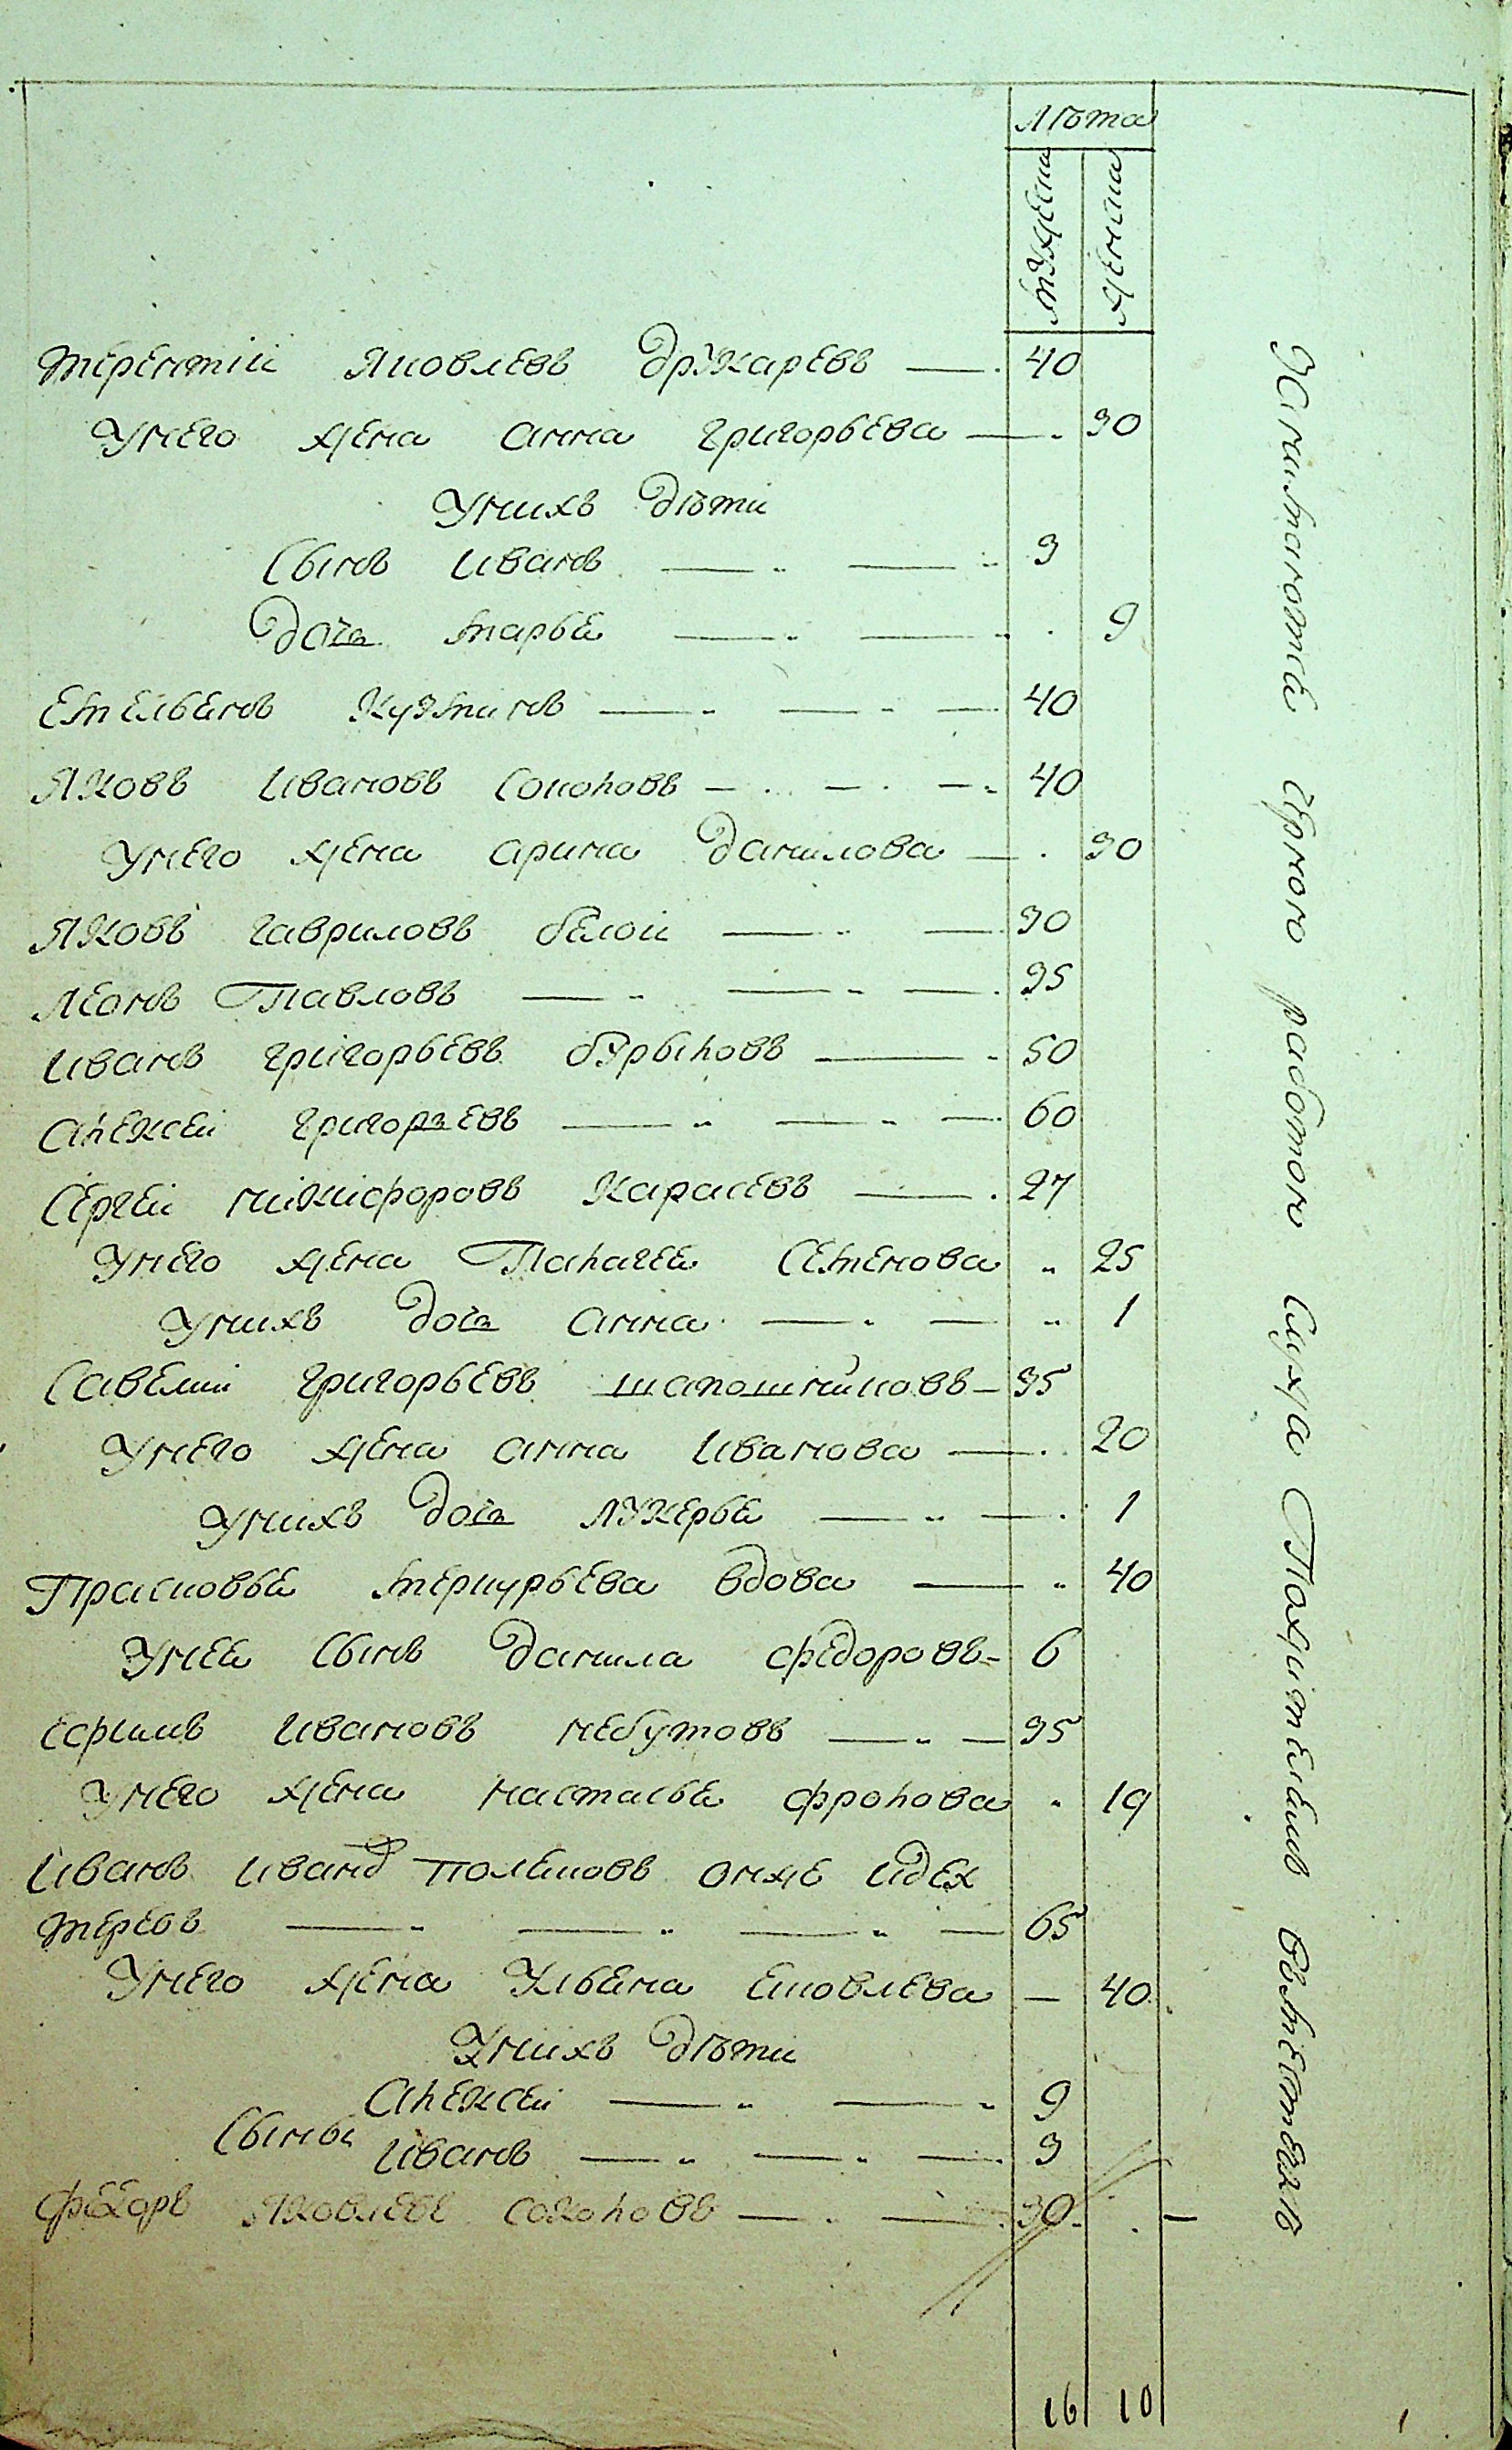 Лѣта
мужеска
женска
Терентій Яковлевъ Дружаревъ 40
Унего жена анна григорьева 30
Унихъ дѣти
Сынъ Иванъ 3
Дочь Марья 9
Емельянъ Кузминъ 40
Яковъ Ивановъ Соколовъ 40
Унего жена арина Данилова 30
Яковъ гавриловъ белой 30
Леонъ Павловъ 35
Иванъ григорьевъ бурыловъ 50
Алексеи григорьевъ 60
Сергеи никифоровъ Карасевъ 27
Унего жена Палагея Семенова 25
Унихъ дочь анна 1
Савелии григорьевъ шапошниковъ 35
Унего жена анна Иванова 20
Унихъ дочь лукерья 1
Прасковья меркурьева вдова 40
Унея Сынъ данила федоровъ 6
ефимъ Ивановъ небутовъ 35
Унего жена настасья фролова 19
Иванъ Иванд Полековъ онже идех
теревъ 65
Унего жена Ульяна Яковлева 40
Унихъ дѣти
Алексеи 9
Сыны
Иванъ 3
федоръ Яковлевъ Соколовъ 30
16 10
черною работою Служа Пожителямъ вместечкѣ